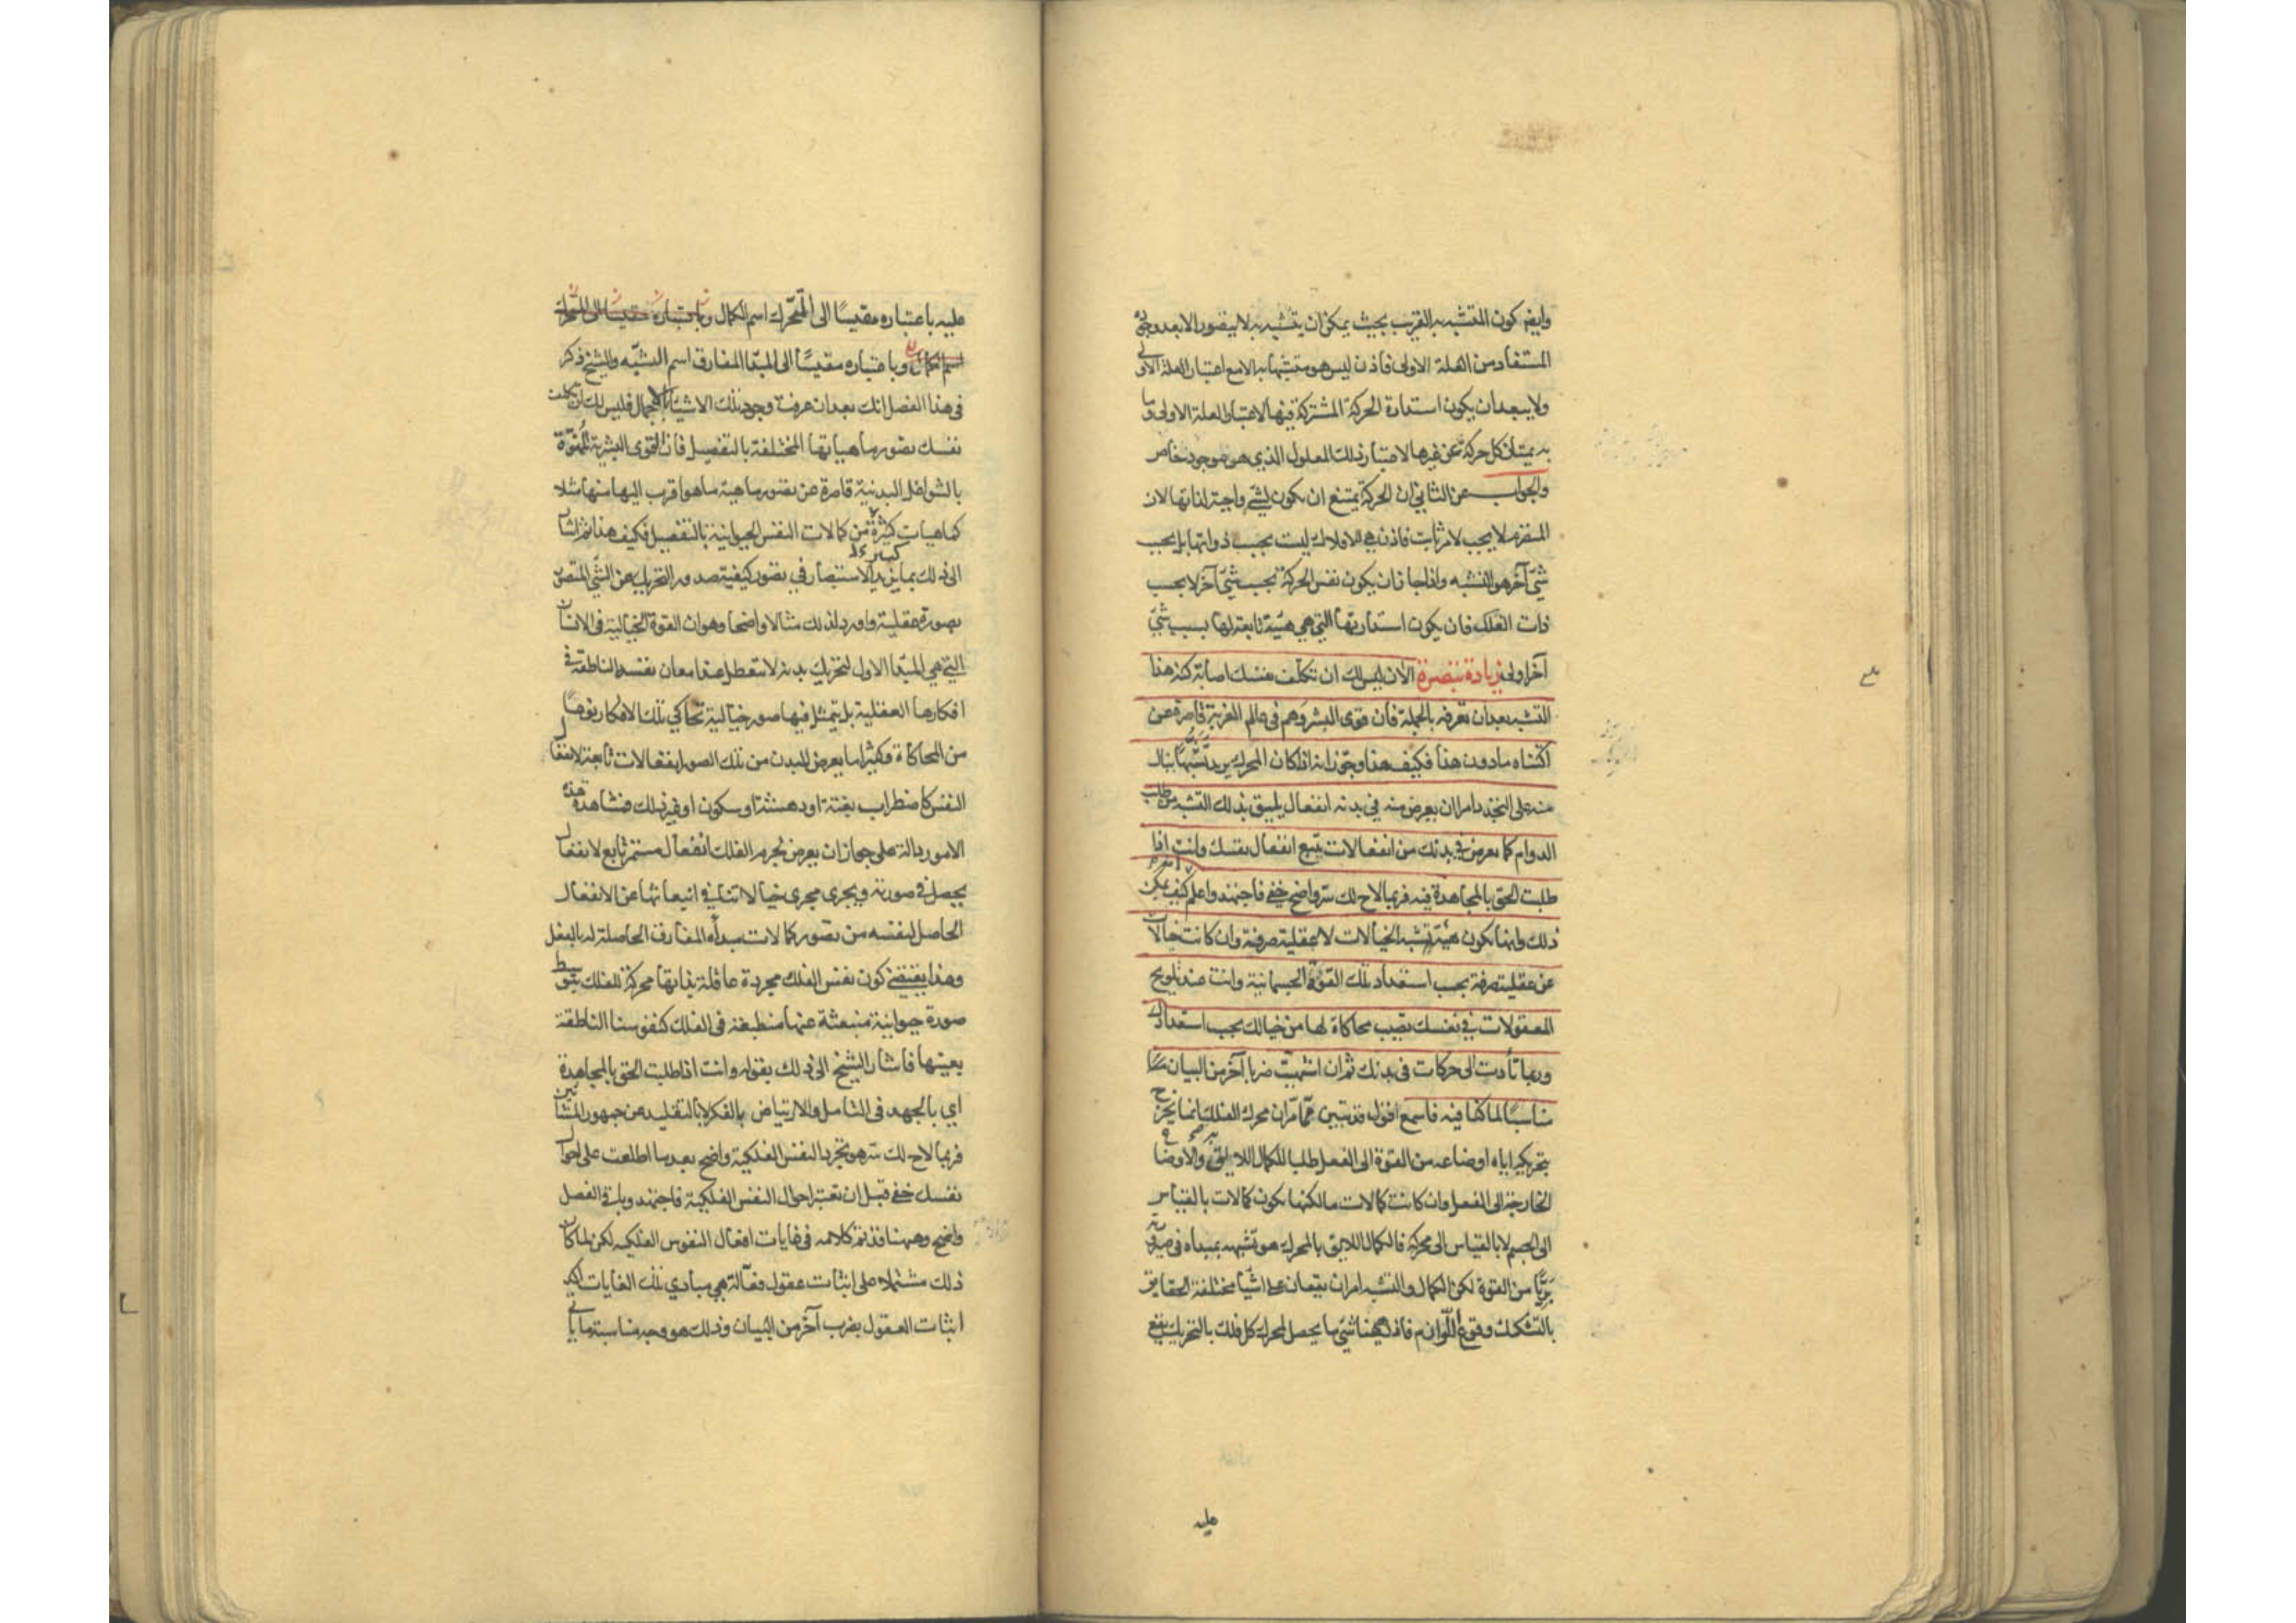 وايضا كون المتشبه به القريب بحيث يمكن ان يتشبه به لا يتصور الا بعد وجوده
المستفاد من العلة الاولى فاذن ليس هو متشبها به الا مع اعتبار العلة الاولى
ولا يبعد ان يكون استدارة الحركة المشتركة فيها لاعتبار العلة الاولى وما
به يمتاز كل حركة عن غيرها لاعتبار ذلك المعلول الذي هو موجود خاص
والجواب عن الثاني ان الحركة يمتنع ان يكون لشئ واجبة لذاتها لان
المتصرم لا يجب لامر ثابت فاذن هي للافلاك ليست بحسب ذواتها بل بحسب
شئ آخر هو التشبه واذا جاز ان يكون نفس الحركة بحسب شئ آخر لا بحسب
ذات الفلك فان يكون استدارتها التي هي هيئة تابعة لها بسبب شئ
آخر اولى زيادة تبصرة الان ليس لك ان تكلف نفسك اصابة كنه هذا
التشبه بعد ان تعرفه بالجملة فان قوى البشر وهم في عالم الغربة قاصرة عن
اكتناه ما دون هذا فكيف هذا وجوز انه اذا كان المحرك يريد تشبها ينال
منه على التجدد امرا ان يعرض منه في بدنه انفعال يليق بذلك التشبه من طلب
الدوام كما يعرض في بدنك من انفعالات يتبع انفعال نفسك وانت اذا
طلبت الحق بالمجاهدة فيه فربما لاح لك سر واضح خفي فاجتهد واعلم كيف يمكن
ذلك وانما يكون هيئة تشبه الخيالات لا عقلية صرفة وان كانت خيالات
عن عقلية صرفة بحسب استعداد تلك القوة الجسمانية وانت عند تلويح
المعقولات في نفسك تصيب محاكاة لها من خيالك بحسب استعدادك
وربما تأدت الى حركات في بدنك ثم ان اشتهيت ضربا آخر من البيان
مناسبا لما كنا فيه فاسمع اقول قد تبين مما مر ان محرك الفلك انما يخرج
بتحريكه اياه اوضاعه من القوة الى الفعل طلبا للكمال اللايق به والاوضاع
الخارجة الى الفعل وان كانت كمالات ما لكنها يكون كمالات بالقياس
الى الجسم لا بالقياس الى محركه فالكمال اللايق بالمحرك هو تشبهه بمبدأه في صيرورته
بريا من القوة لكن الكمال والتشبه امران يقعان على اشيا مختلفة الحقايق
بالتشكيك وقوع اللوازم فاذن هيهنا شئ ما يحصل لمحرك كل فلك بالتحريك يقع
عليه
عليه باعتباره مقيسا الى المتحرك اسم الكمال وباعتباره مقيسا الى المتحرك
اسم الكمال وباعتباره مقيسا الى المبدأ المفارق اسم التشبه والشيخ ذكر
في هذا الفصل انك بعد ان عرفت وجود تلك الاشياء بالاجمال فليس لك ان تكلف
نفسك تصور ماهياتها المختلفة بالتفصيل فان القوى البشرية الممنوة
بالشواغل البدنية قاصرة عن تصور ماهية ما هو اقرب اليها منها مثلا
كماهيات كثيرة من كمالات النفس الحيوانية بالتفصيل فكيف هذا ثم اشار
الى ذلك بما يزيد الاستبصار في تصور كيفية صدور التحريك عن الشئ المتصور
بصورة عقلية واورد لذلك مثالا واضحا وهو ان القوة الخيالية في الانسان
التي هي المبدأ الاول لتحريك بدنه لا تتعطل عند امعان نفسه الناطقة في
افكارها العقلية بل يتمثل فيها صور خيالية تحاكي تلك الافكار نوعا
من المحاكاة وكثيرا ما يعرض للبدن من تلك الصور انفعالات تابعة لانفعال
النفس كاضطراب بغتة او دهشة او سكون او غير ذلك ومشاهدة هذه
الامور دالة على جواز ان يعرض لجرم الفلك انفعال مستمر تابع لانفعال
يحصل في صورته ويجري مجرى خيالاتنا في انبعاثها عن الانفعال
الحاصل لنفسه من تصور كمالات مبدأه المفارق الحاصلة له بالفعل
وهذا يقتضي كون نفس الفلك مجردة عاقلة بذاتها محركة للفلك بتوسط
صورة حيوانية منبعثة عنها منطبعة في الفلك كنفوسنا الناطقة
بعينها فاشار الشيخ الى ذلك بقوله وانت اذا طلبت الحق بالمجاهدة
اي بالجهد في التامل والارتياض بالفكر لا بالتقليد عن جمهور المشائين
فربما لاح لك سر هو تجرد النفس الفلكية واضح بعد ما اطلعت على احوال
نفسك خفي قبل ان تعتبر احوال النفس الفلكية فاجتهد وباقي الفصل
واضح وههنا قد تم كلامه في غايات افعال النفوس الفلكية لكن لما كان
ذلك مشتملا على اثبات عقول فعالة هي مبادي تلك الغايات اكد
اثبات العقول بضرب آخر من البيان وذلك هو وجه مناسبة ما يأتي